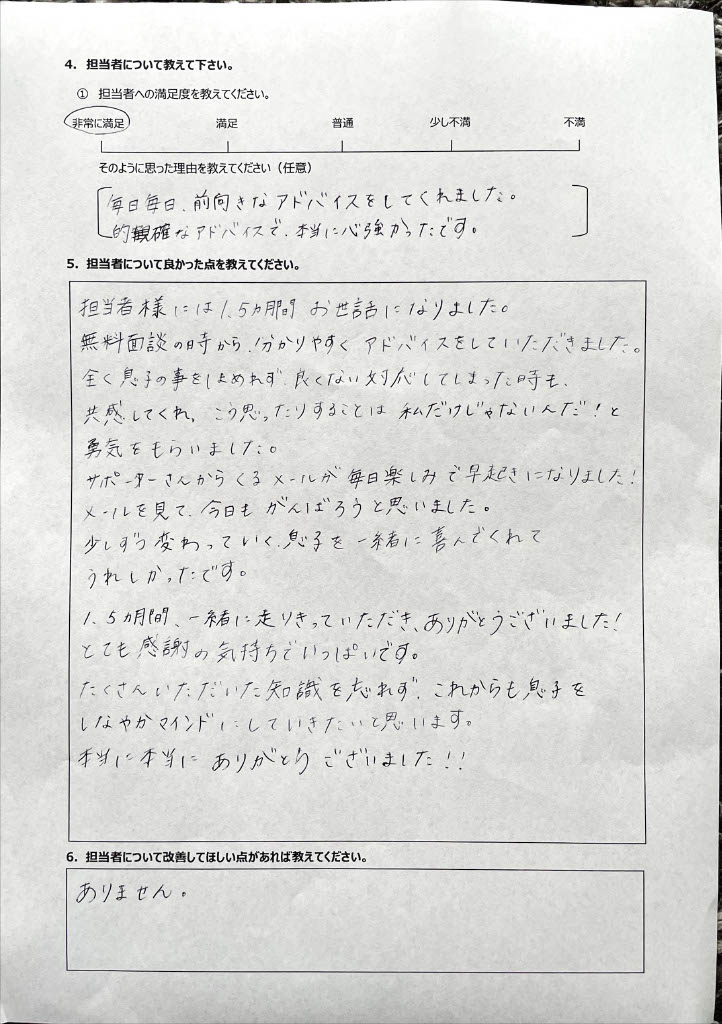 4. 担当者について教えて下さい。
① 担当者への満足度を教えてください。
非常に満足 満足 普通 少し不満 不満
そのように思った理由を教えてください（任意）
毎日毎日、前向きなアドバイスをしてくれました。
的確なアドバイスで、本当に心強かったです。
5. 担当者について良かった点を教えてください。
担当者様には1.5ヵ月間 お世話になりました。
無料面談の時から、分かりやすく アドバイスをしていただきました。
全く息子の事をほめれず、良くない対応してしまった時も、
共感してくれ、こう思ったりすることは 私だけじゃないんだ！と
勇気をもらいました。
サポーターさんからくるメールが毎日楽しみで早起きになりました！
メールを見て、今日も がんばろうと思いました。
少しずつ変わっていく、息子を一緒に喜んでくれて
うれしかったです。
1.5ヵ月間、一緒に走りきっていただき、ありがとうございました！
とても感謝の気持ちでいっぱいです。
たくさんいただいた知識を忘れず、これからも息子を
しなやかマインドにしていきたいと思います。
本当に本当に ありがとう ございました！！
6. 担当者について改善してほしい点があれば教えてください。
ありません。